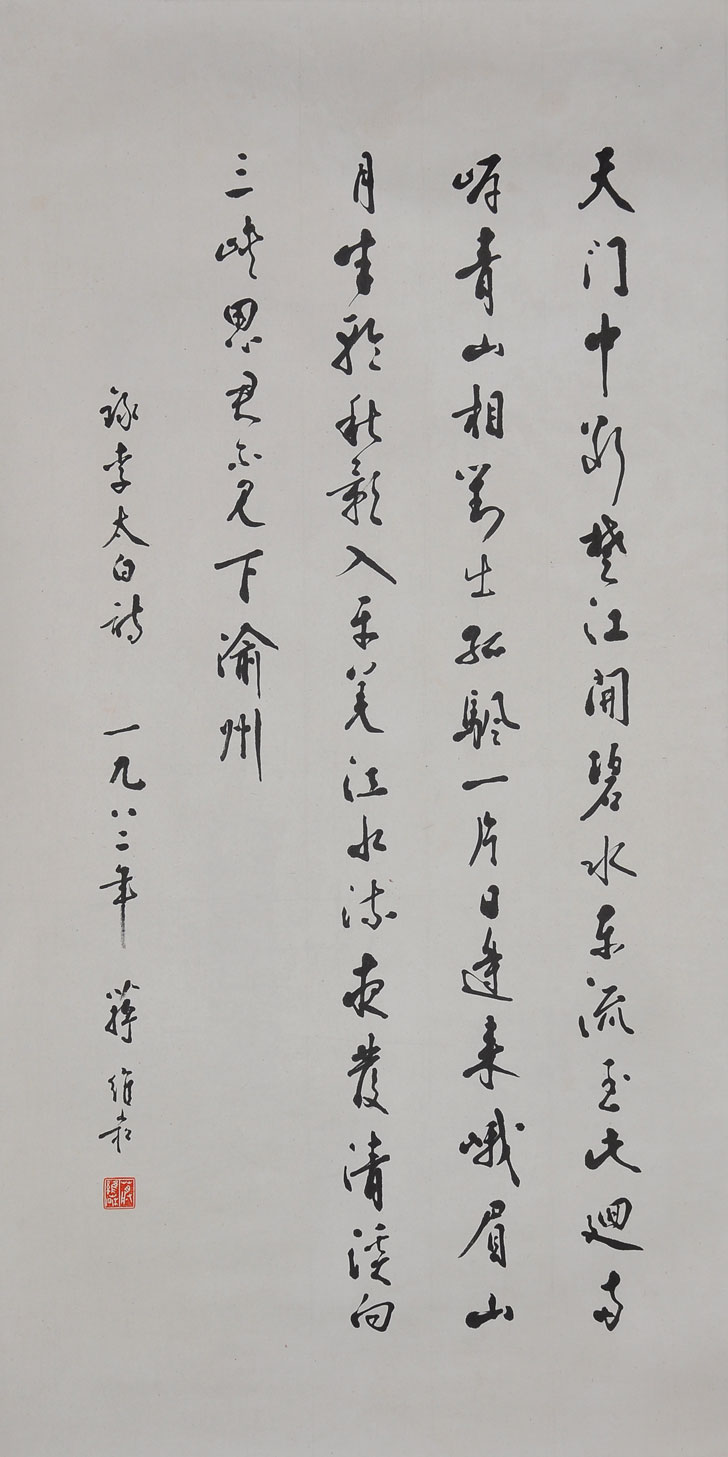 天门中断楚江開碧水东流至此廻两
岸青山相對出孤驷一片日邊来峨眉山
月半輪秋影入平羌江水流夜發清溪向
三峡思君不见下渝州
録李太白詩 一九八二年 蒋維崧
蒋維崧